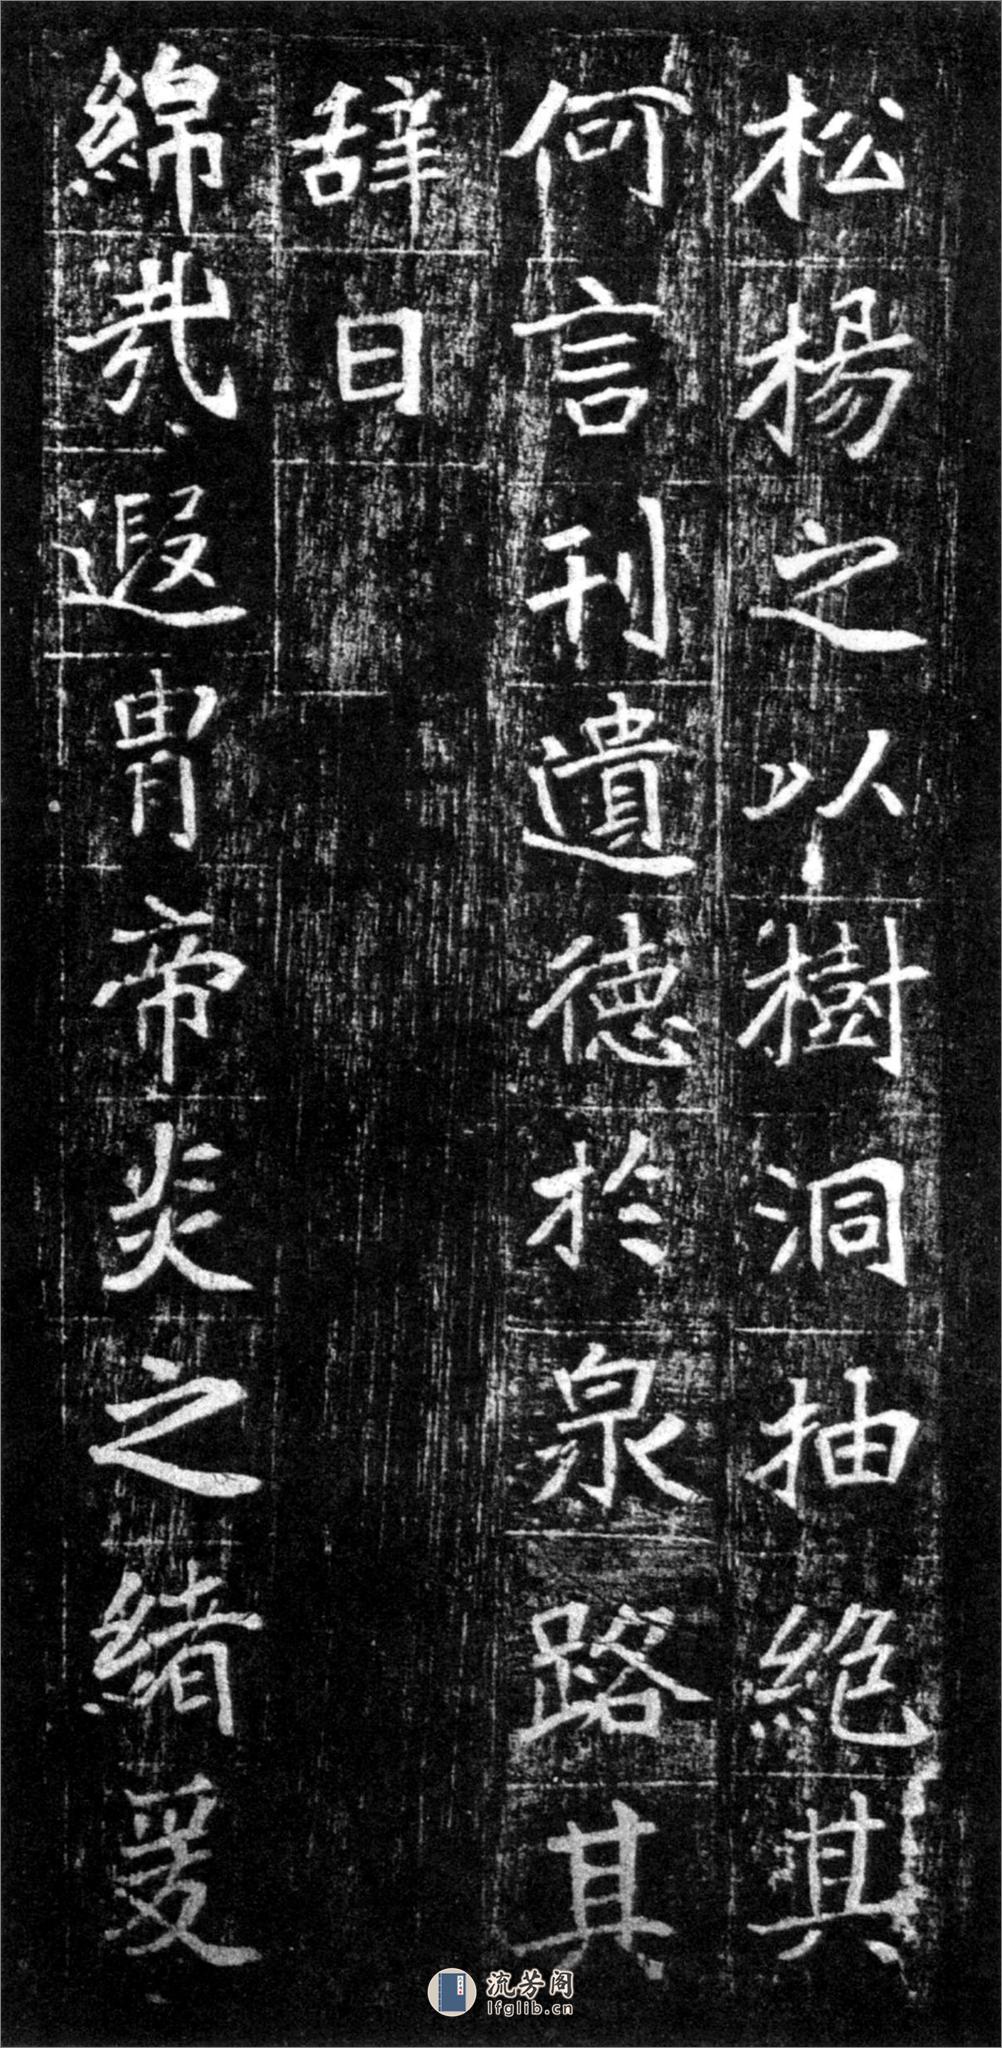 松楊之以樹洞抽絶其
何言刊遺德於泉路其
辤曰
綿哉遐胄帝炎之緒爰
流芳阁
lfglib.cn